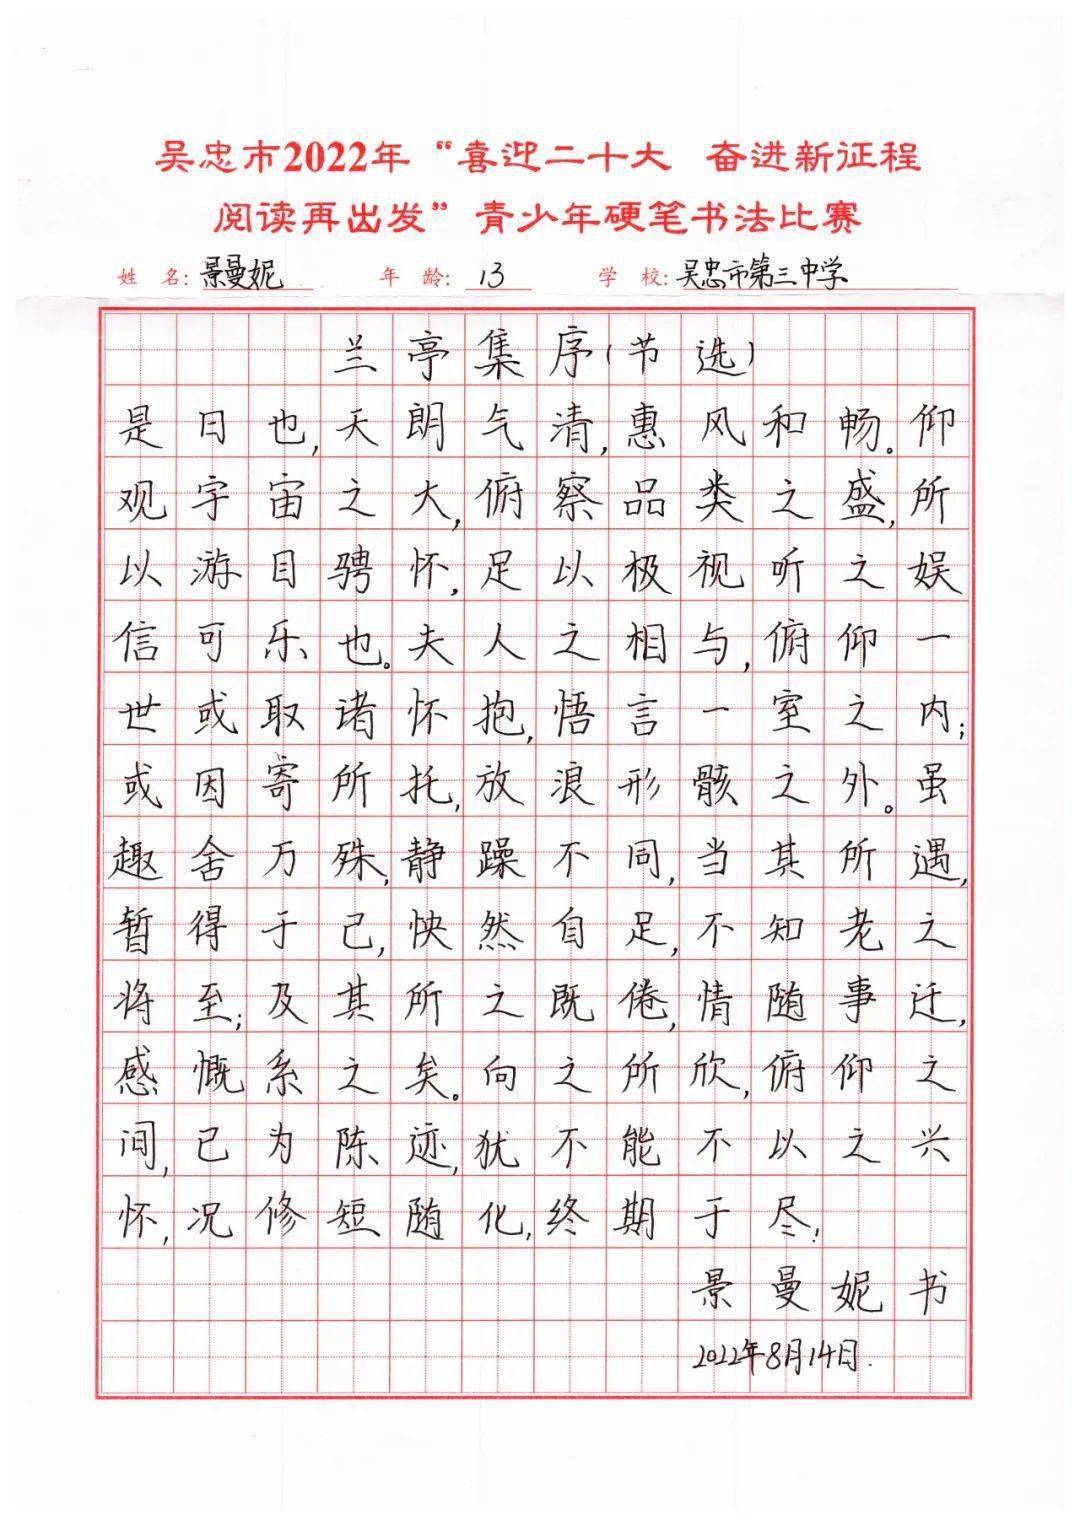 吴忠市2022年“喜迎二十大 奋进新征程
阅读再出发”青少年硬笔书法比赛
姓 名: 景曼妮 年 龄: 13 学 校: 吴忠市第三中学
兰亭集序(节选)
是日也,天朗气清,惠风和畅。仰
观宇宙之大,俯察品类之盛,所
以游目骋怀,足以极视听之娱
信可乐也。夫人之相与,俯仰一
世或取诸怀抱,悟言一室之内;
或因寄所托,放浪形骸之外。虽
趣舍万殊,静躁不同,当其所遇,
暂得于己,快然自足,不知老之
将至;及其所之既倦,情随事迁,
感慨系之矣。向之所欣,俯仰之
间,已为陈迹,犹不能不以之兴
怀,况修短随化,终期于尽!
景曼妮书
2022年8月14日.